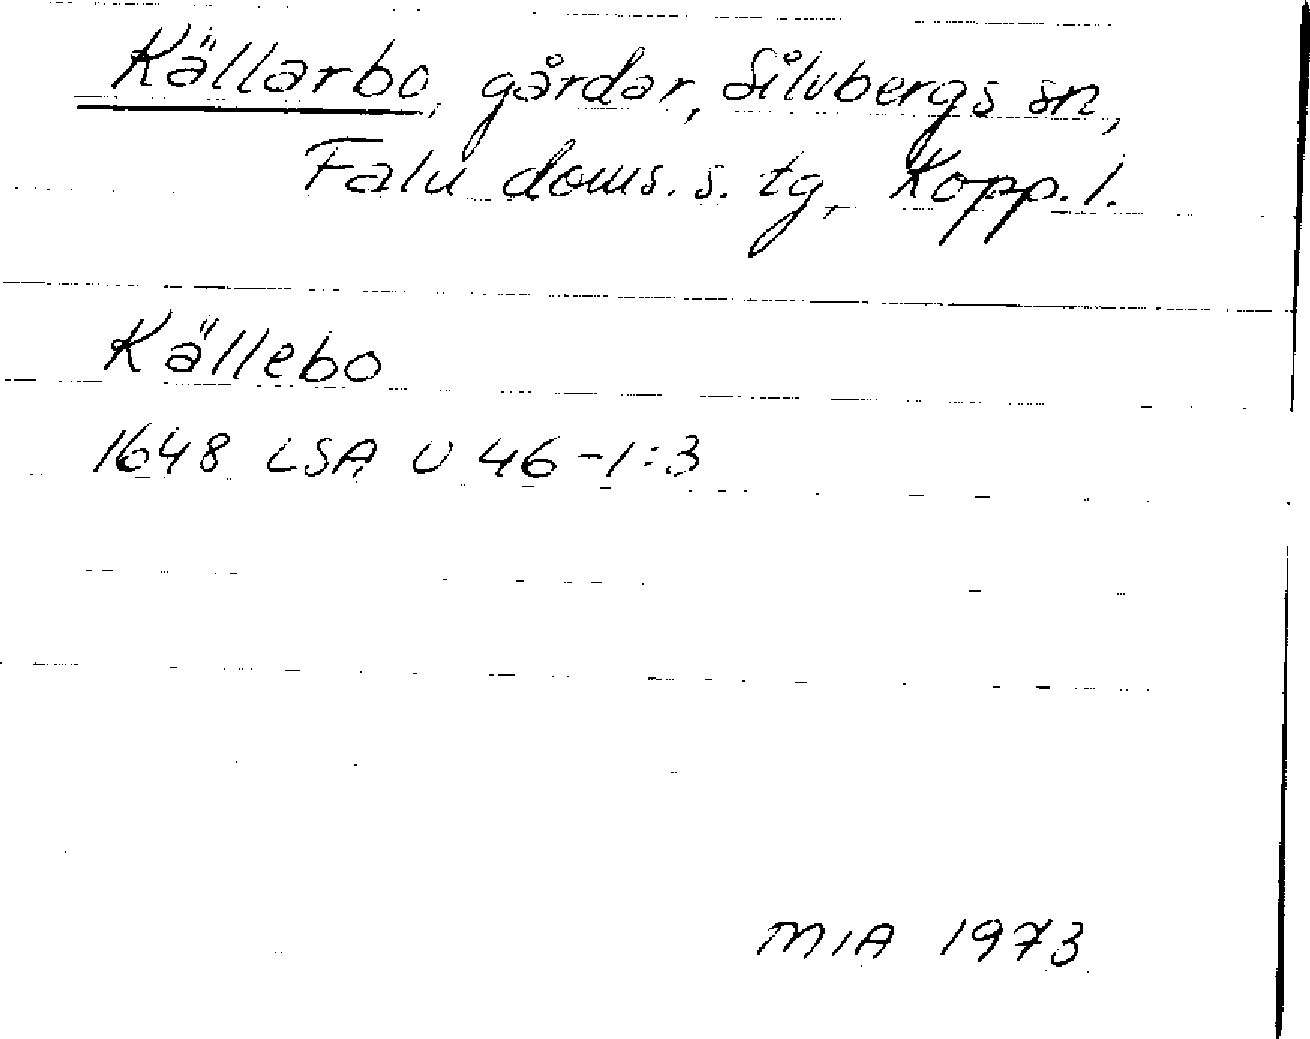 Källarbo, gårdar, Silvbergs sn,
Falu doms. s. tg, Kopp. l.
Källebo
1648 LSA U 46-1:3
MIA 1973